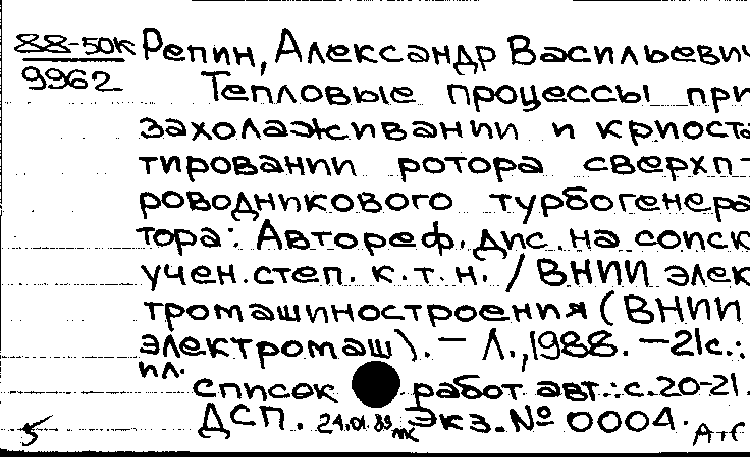 88-50К Репин, Александр Васильевич
9962 Тепловые процессы при
захолаживании и криоста
тировании ротора сверхп-
роводникового турбогенера
тора: Автореф. дис. на соиск
учен. степ. к.т.н. / ВНИИ элек
тромашиностроения (ВНИИ
электромаш). – Л., 1988. – 21с.:
ил.
список работ авт.: с. 20-21.
ДСП. 24.01.89 Экз. № 0004.
5